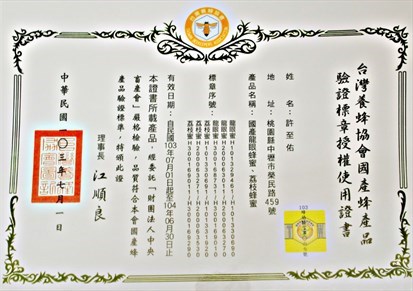 台灣養蜂協會國產蜂產品
驗證標章授權使用證書
姓 名：許至佑
地 址：桃園縣中壢市榮民路459號
產品名稱：國產龍眼蜂蜜、荔枝蜂蜜
標章序號：
龍眼蜜
龍眼蜜
荔枝蜜
荔枝蜜
有效日期：自民國103年07月01日起至104年06月30日止
本證書所載產品，經委託「財團法人中央
畜產會」嚴格檢驗，品質符合本會國產蜂
產品驗證標準，特頒此證
理事長 江順良
中華民國一〇三年七月一日
103